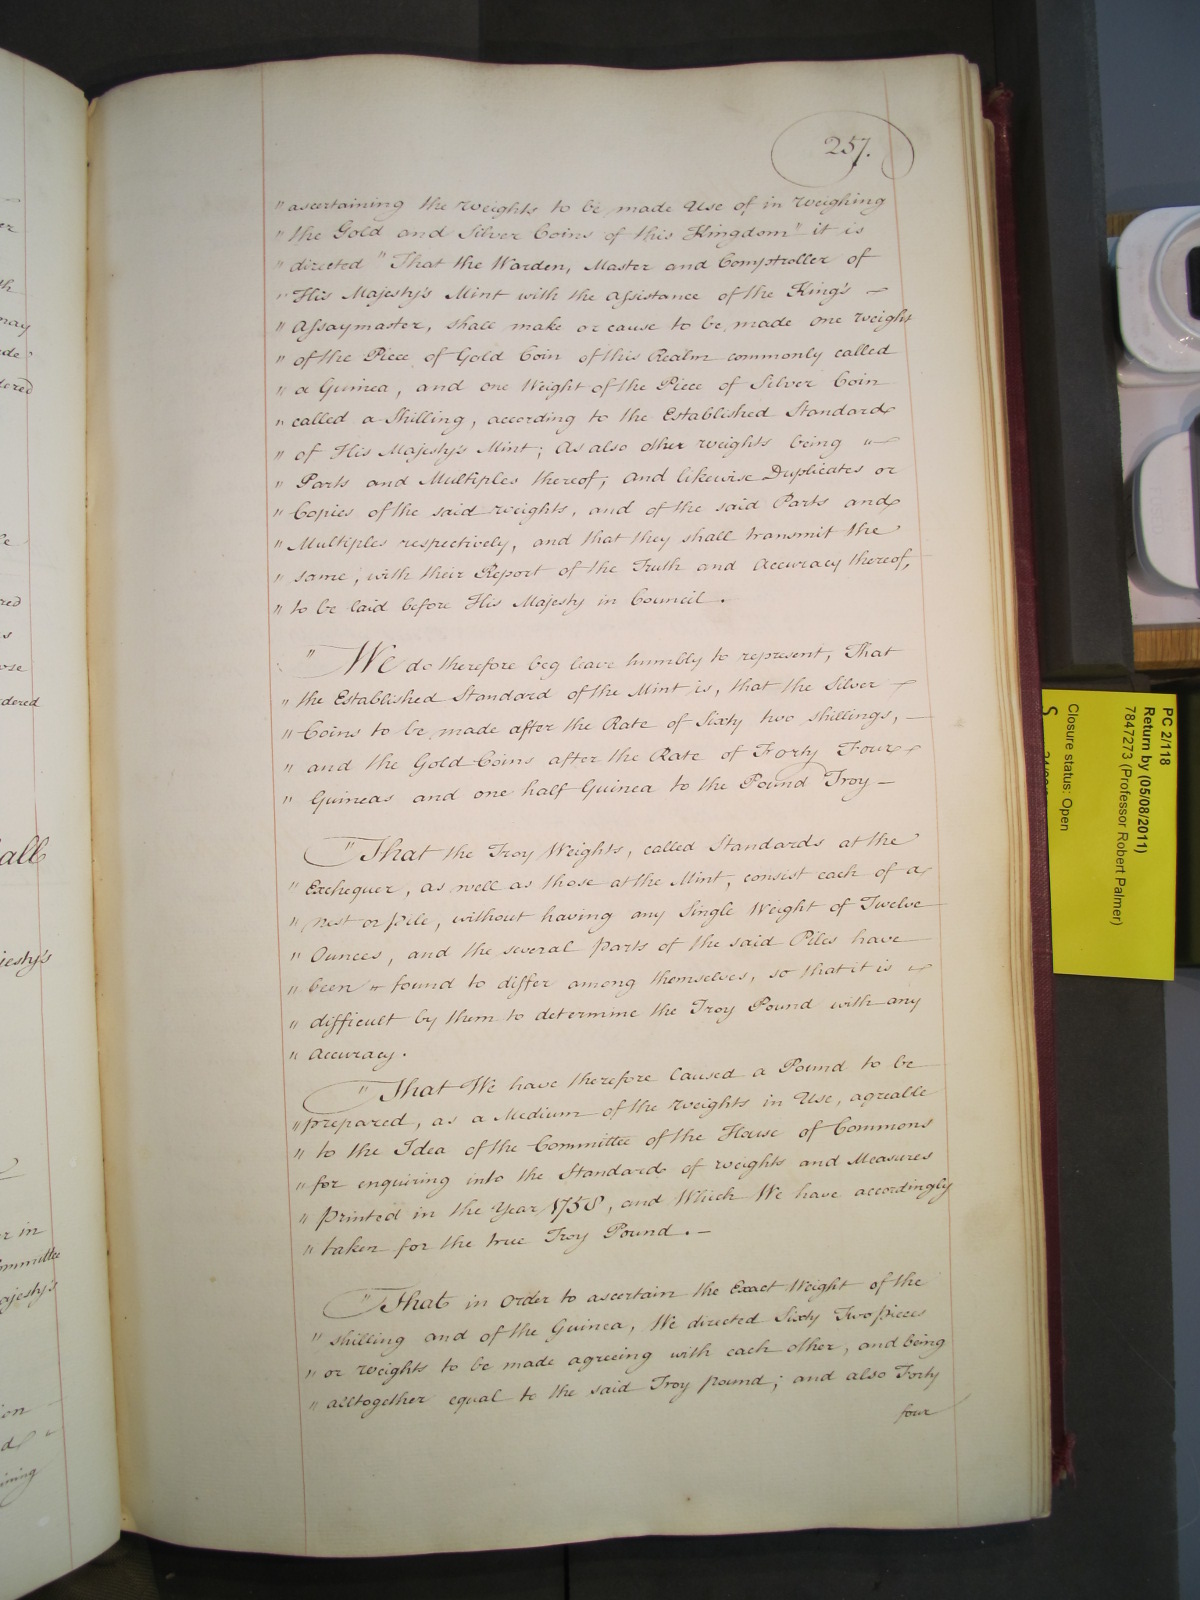 257.
" ascertaining the weights to be made Use of in weighing
" the Gold and Silver Coins of this Kingdom" it is
" directed " That the Warden, Master and Comptroller of
" His Majesty's Mint with the Assistance of the King's —
" Assaymaster, shall make or cause to be made one weight
" of the Piece of Gold Coin of this Realm commonly called
" a Guinea, and one Weight of the Piece of Silver Coin
" called a Shilling, according to the Established Standard
" of His Majesty's Mint; As also other weights being "—
" Parts and Multiples thereof; and likewise Duplicates or
" Copies of the said weights, and of the said Parts and
" Multiples respectively, and that they shall transmit the
" same, with their Report of the Truth and Accuracy thereof,
" to be laid before His Majesty in Council.
" We do therefore beg leave humbly to represent, That
" the Established Standard of the Mint is, that the Silver —
" Coins to be made after the Rate of Sixty two shillings, —
" and the Gold Coins after the Rate of Forty Four
" Guineas and one half Guinea to the Pound Troy —
" That the Troy Weights, called Standards at the
" Exchequer, as well as those at the Mint, consist each of a
" nest or pile, without having any Single Weight of Twelve
" Ounces, and the several parts of the said Piles have
" been " found to differ among themselves, so that it is
" difficult by them to determine the Troy Pound with any
" Accuracy.
" That We have therefore Caused a Pound to be
" prepared, as a Medium of the weights in Use, agreable
" to the Idea of the Committee of the House of Commons
" for enquiring into the Standard of weights and Measures
" Printed in the Year 1758, and Which We have accordingly
" taken for the true Troy Pound. —
" That in Order to ascertain the Exact Weight of the
" shilling and of the Guinea, We directed Sixty Two pieces
" or weights to be made agreeing with each other, and being
" alltogether equal to the said Troy pound; and also Forty
four
er
th
may
dered
red
s
dered
all
jesty's
r in
ommittee
ajesty's
ion
d
ining
PC 2/118
Return by (05/08/2011)
7847273 (Professor Robert Palmer)
Closure status: Open
S